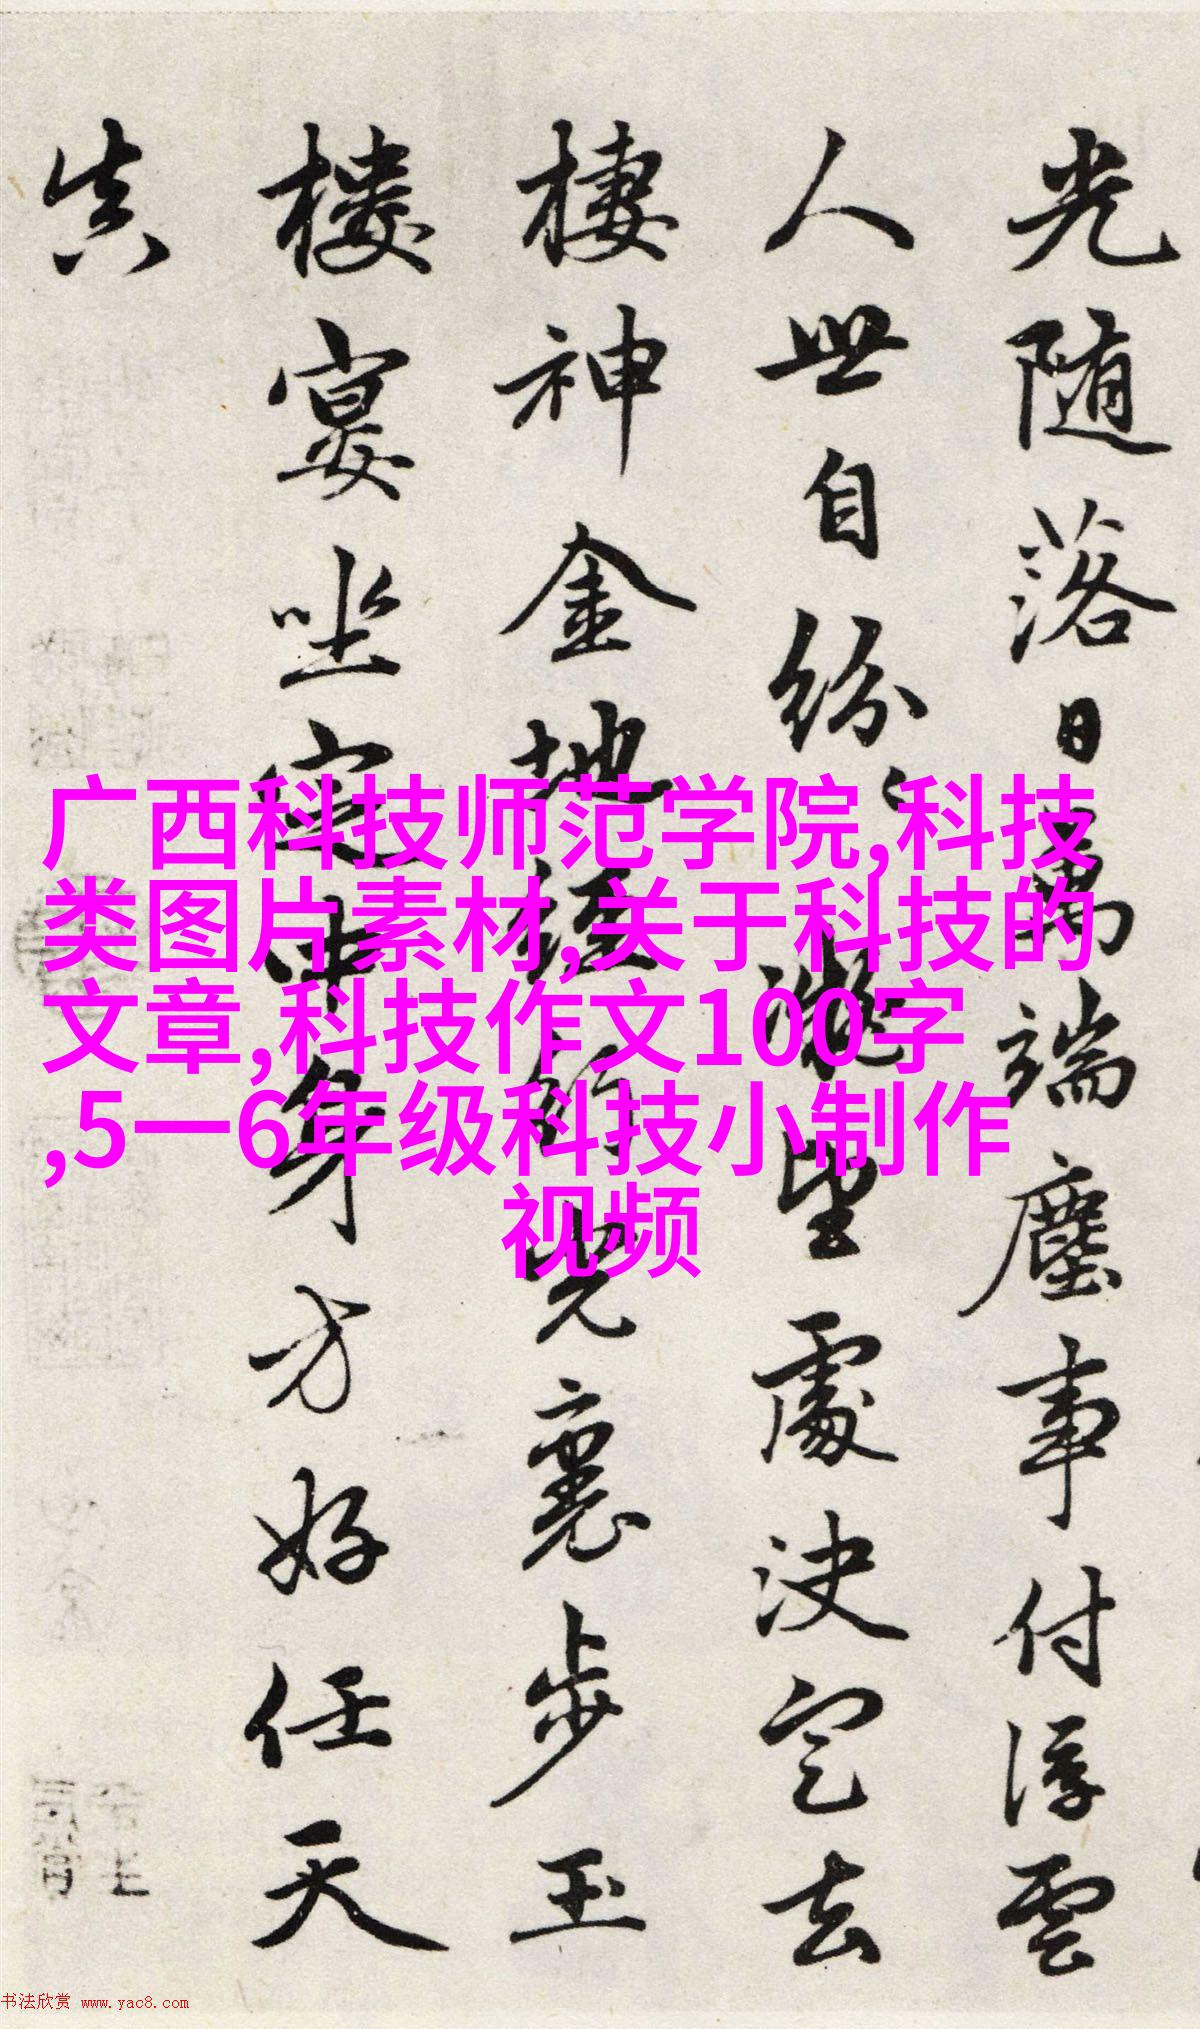 光随落日萬端塵事付浮雲
人世自紛〻凝望處决定去
棲神金地經行光裏步玉
樓宴坐定中身方好任天
真
广西科技师范学院,科技
类图片素材,关于科技的
文章,科技作文100字
,5一6年级科技小制作
视频
书法欣赏 www.yac8.com